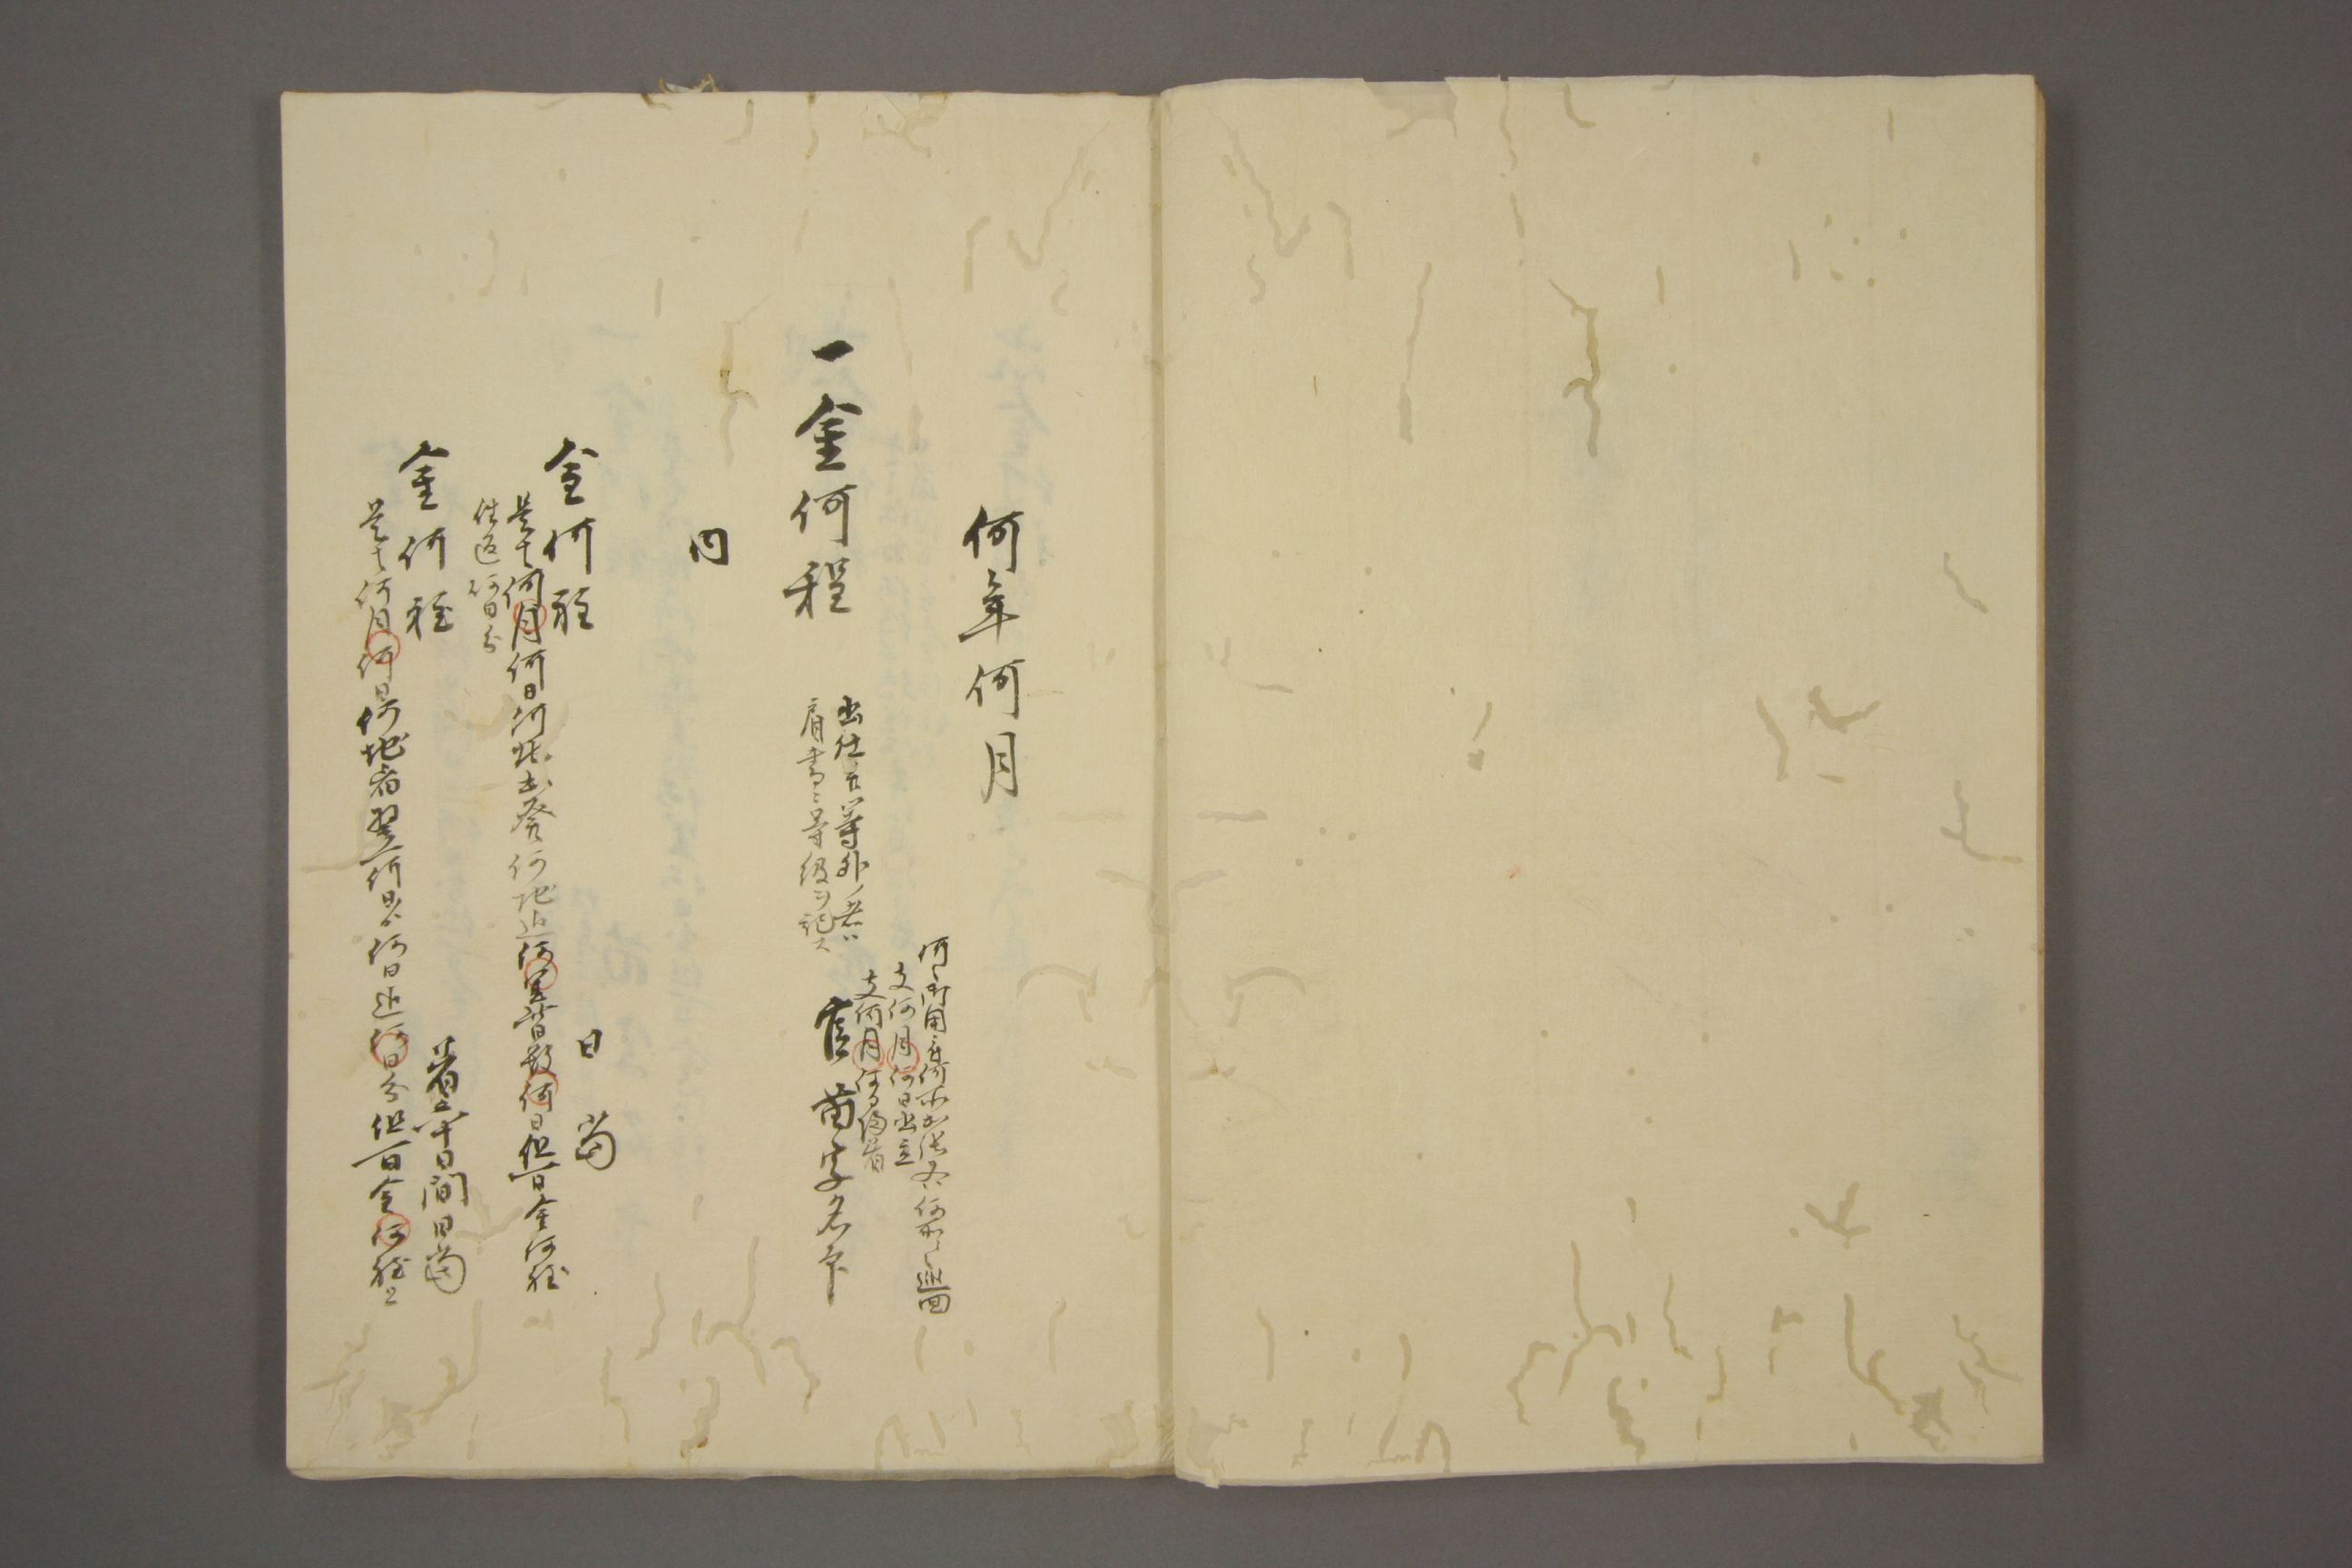 何年何月
何々御用ニ付何所出張又ハ何所々巡回
支何月何日出立
支何月何日帰着
一金何程
出仕官等外ノ者ハ
肩書ニ等級ヲ記ス
官苗字名印
内
日当
金何程
是ハ何月何日何地出発何地迄何里此日数何日但一日金何程
往返何日分
着六十日間日当
金何程
是ハ何月何日何地着翌何日ゟ何日迄何日分但一日金何程ツヽ